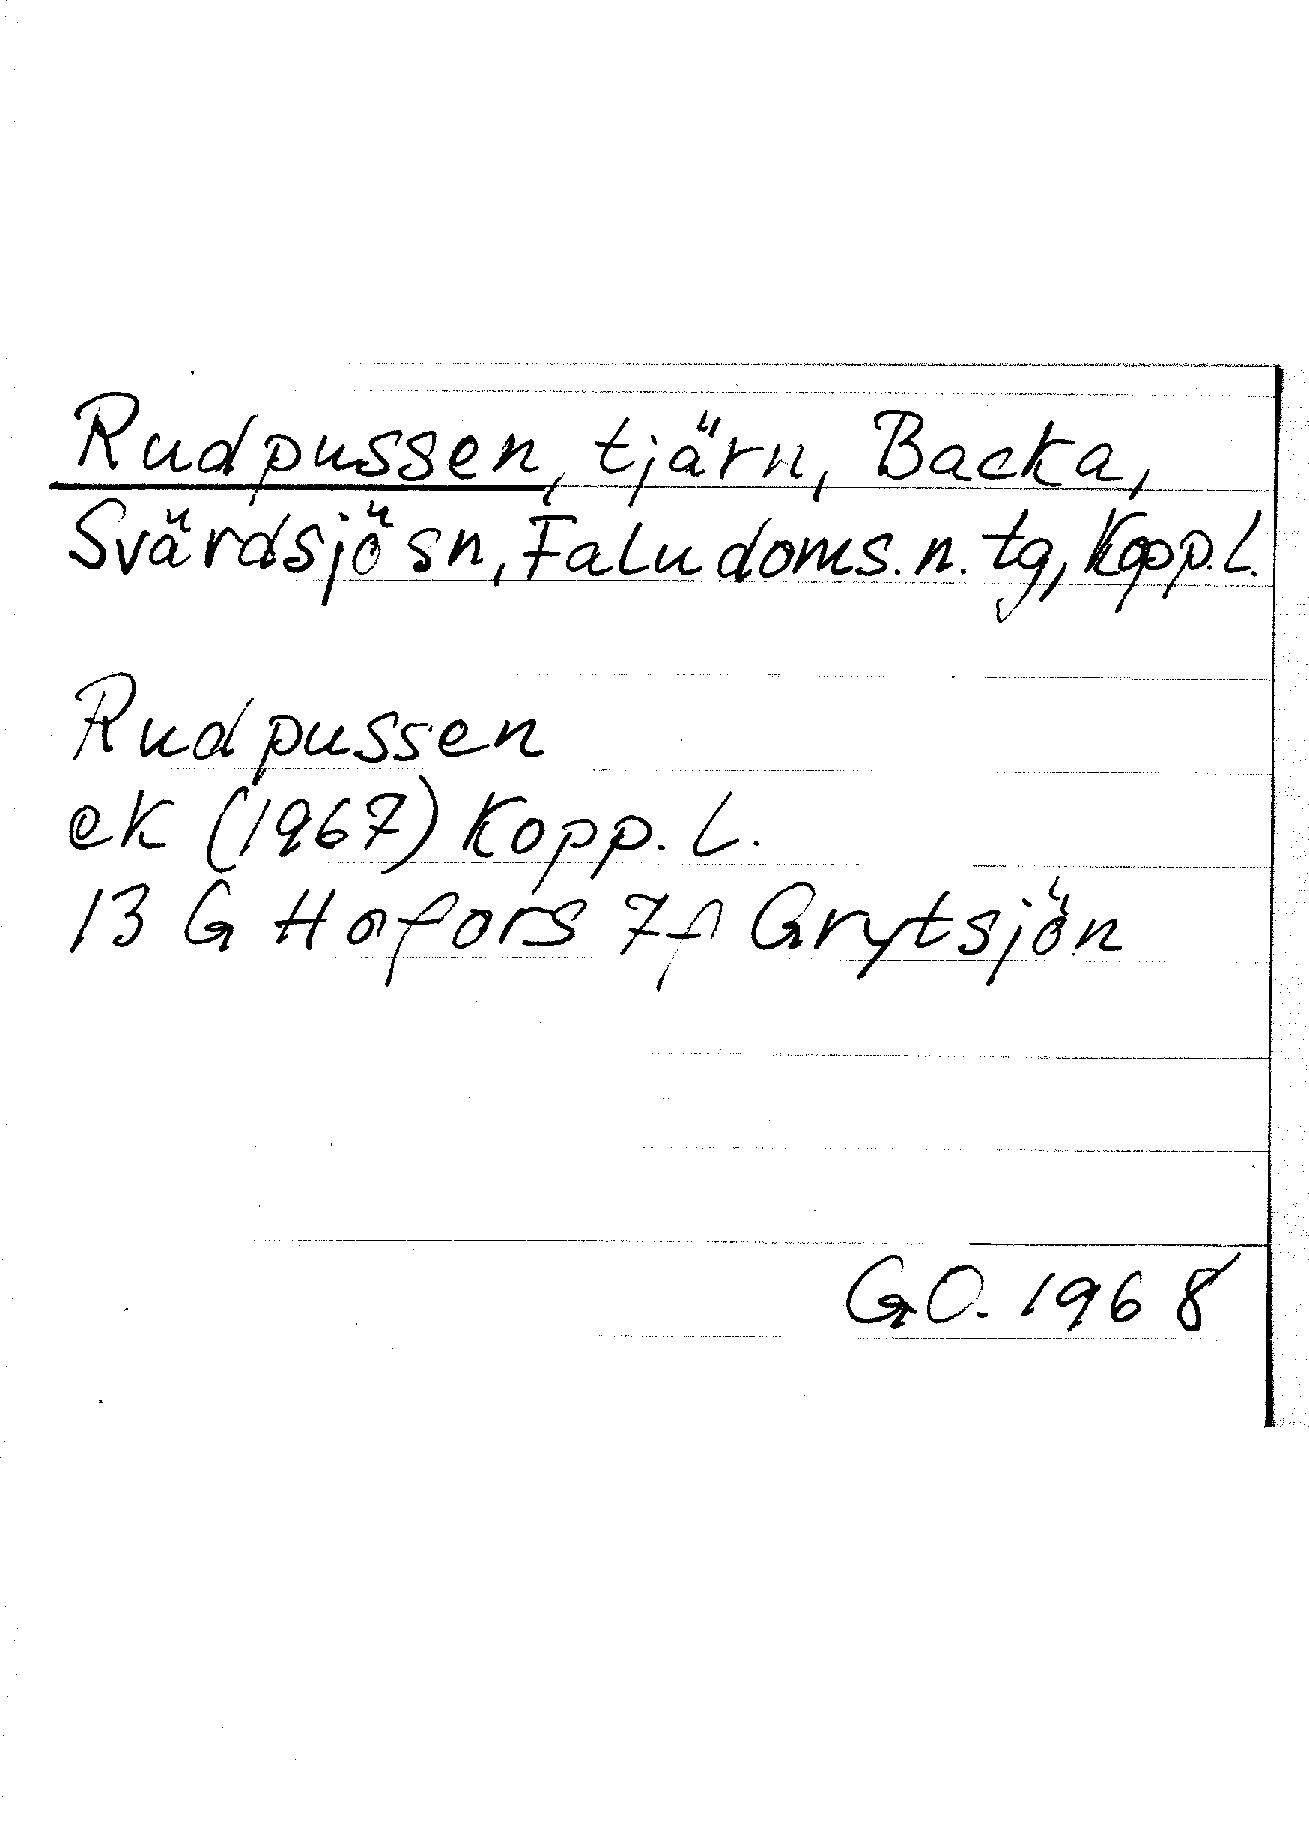 Rudpussen, tjärn, Backa,
Svärdsjö sn, Falu doms. n. tg, Kopp. L.
Rudpussen
ek (1967) Kopp. L.
13 G Hofors 7f Grytsjön
GO. 1968